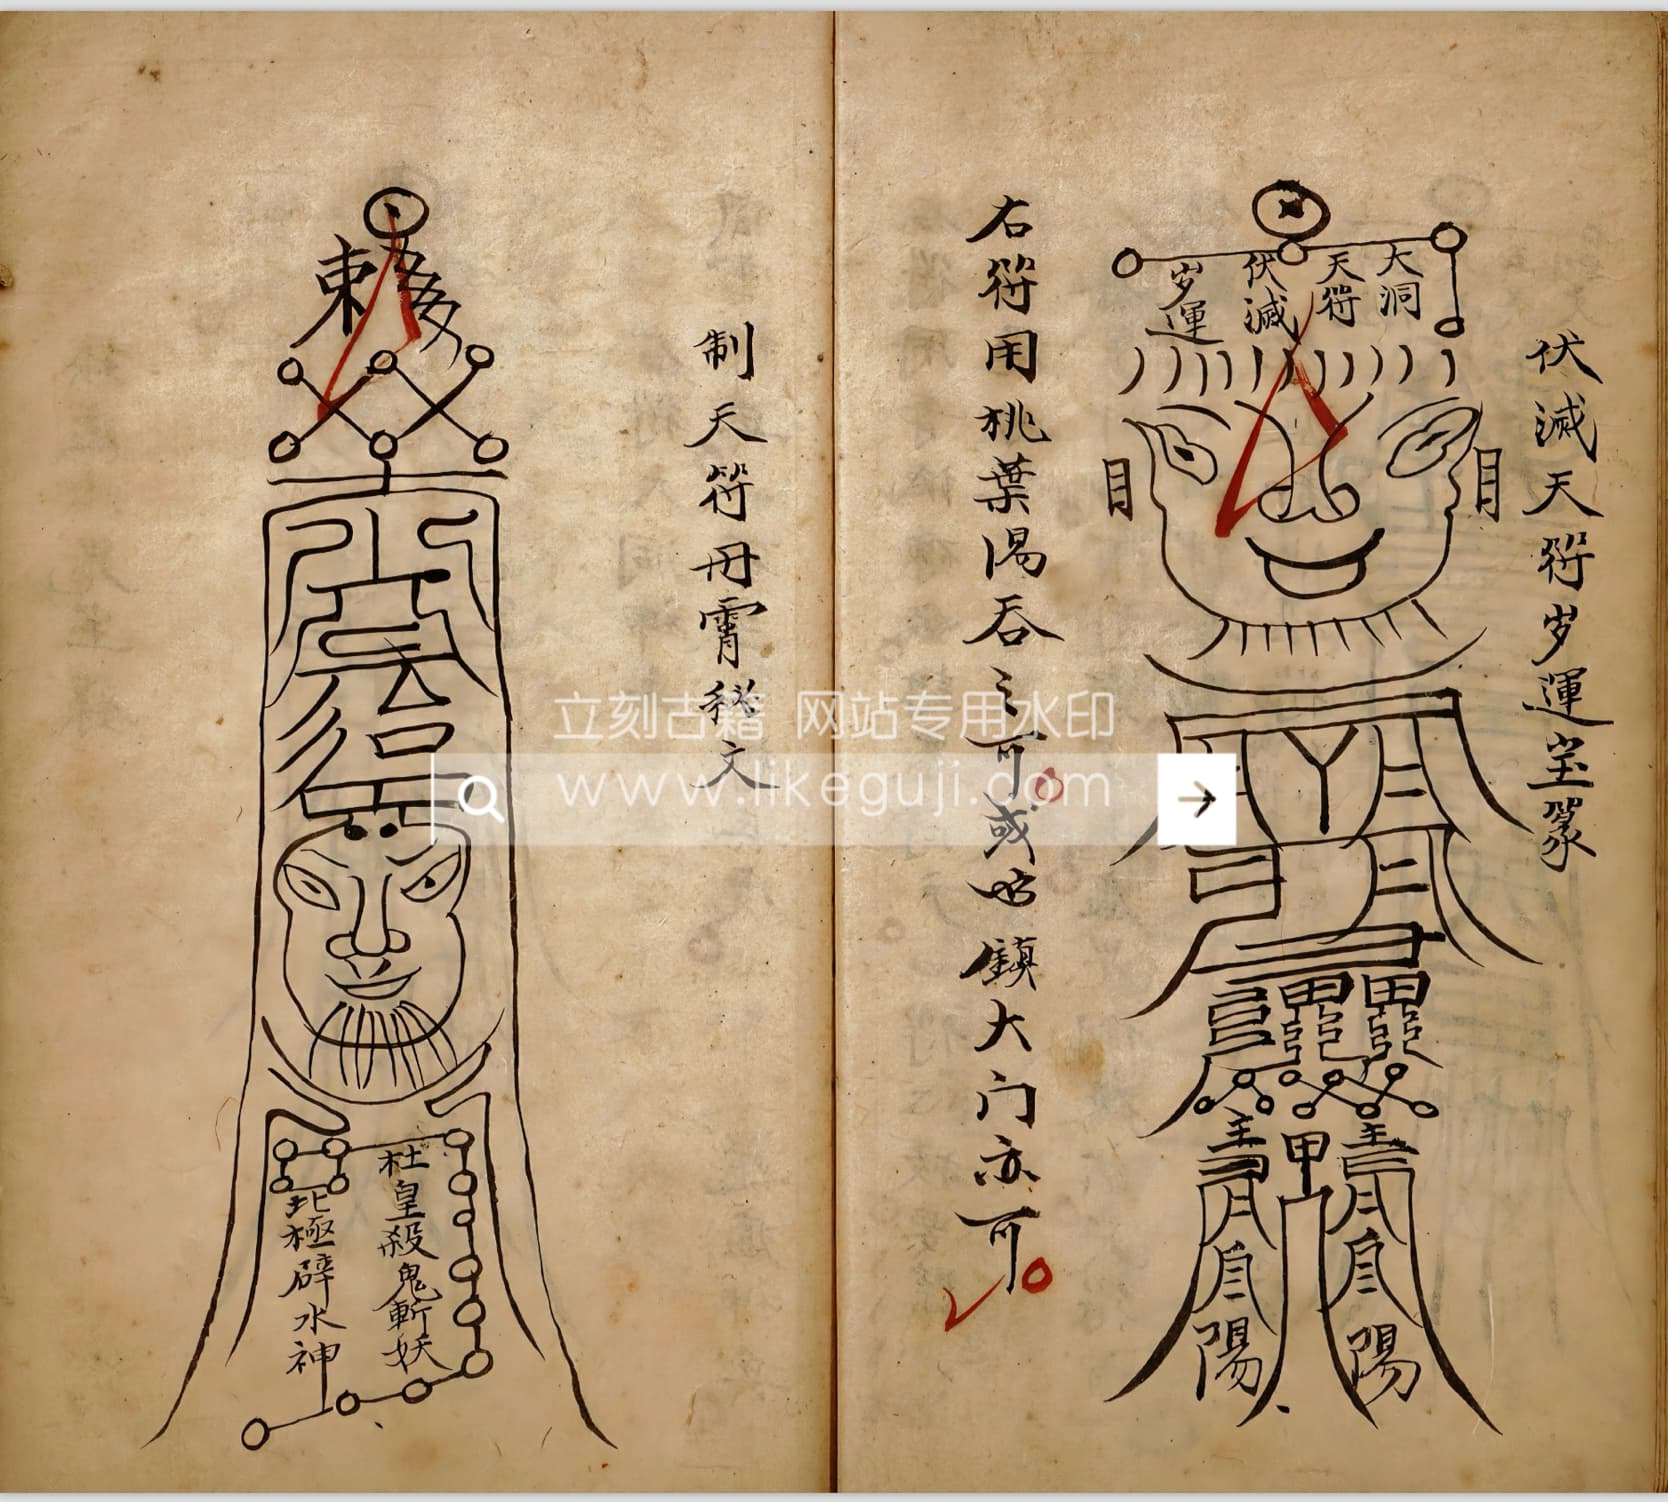 伏滅天符岁運宝篆
大洞
天符
伏滅
岁運
目
目
甲
陽
陽
右符用桃葉湯吞之可
或安鎮大门亦可
制天符丹霄秘文
敕
杜皇殺鬼斬妖
北極辟水神
立刻古籍 网站专用水印
www.likeguji.com